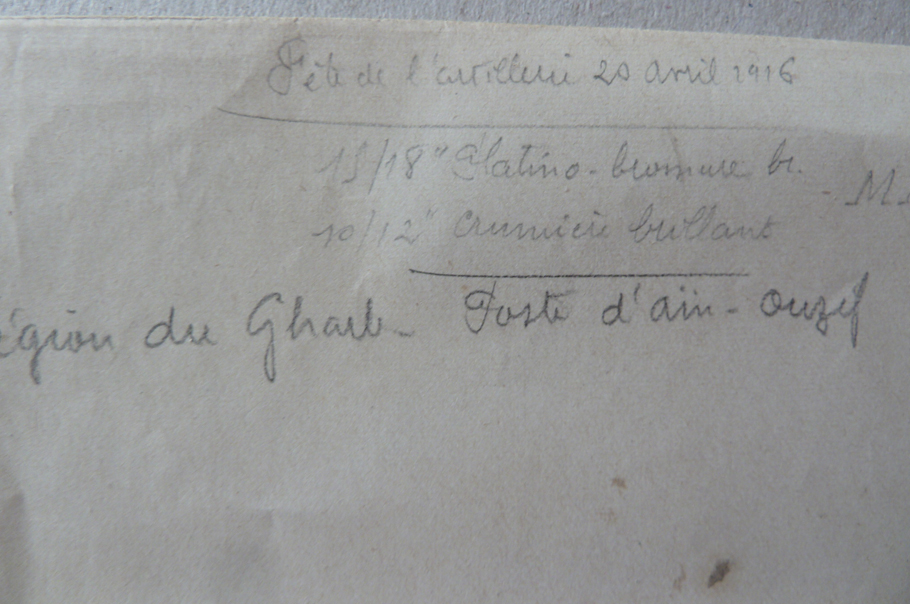 Fête de l'artillerie 20 avril 1916
13/18" Platino-bromure br.
- M
10/12" brillant
égion du Gharb - Poste d'aïn-ouzif